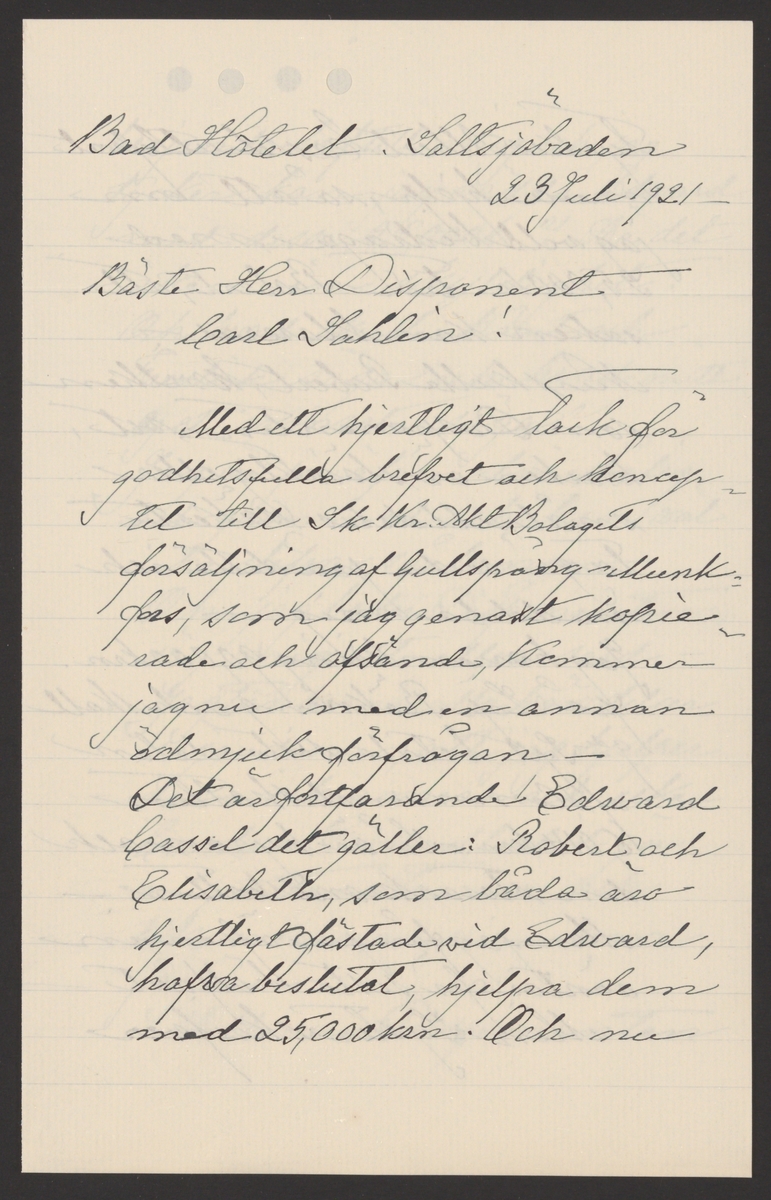 Bad Hôtelet. Saltsjöbaden
23 Juli 1921 —
Bäste Herr Disponent
Carl Sahlin!
Med ett hjertligt tack för
godhetsfulla brefvet och koncep-
tet till Sk Kr. Akt Bolagets
försäljning af Gullspång-Munk-
fors, som jag genast kopie-
rade och afsände, kommer
jag nu med en annan
ödmjuk förfrågan —
Det är fortfarande Edward
Cassel det gäller: Robert och
Elisabeth, som båda äro
hjertligt fästade vid Edward,
hafva beslutat, hjelpa dem
med 25,000 krn. Och nu